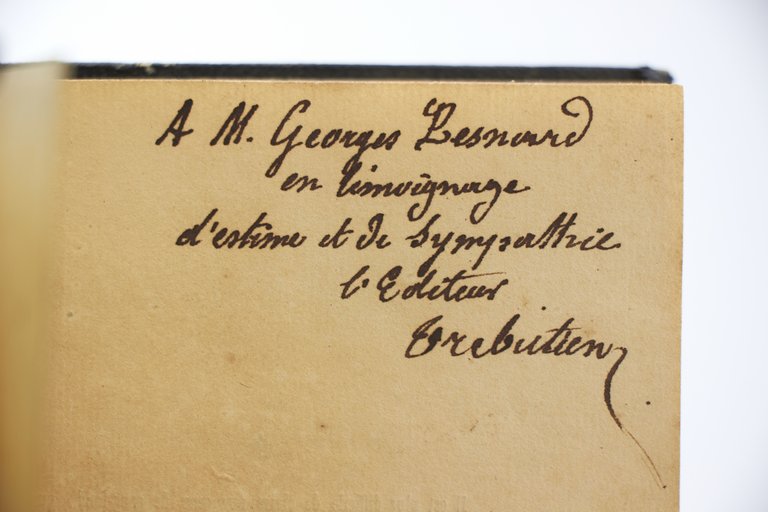 A M. Georges Besnard
en témoignage
d'estime et de sympathie
l'Editeur
Trebutien